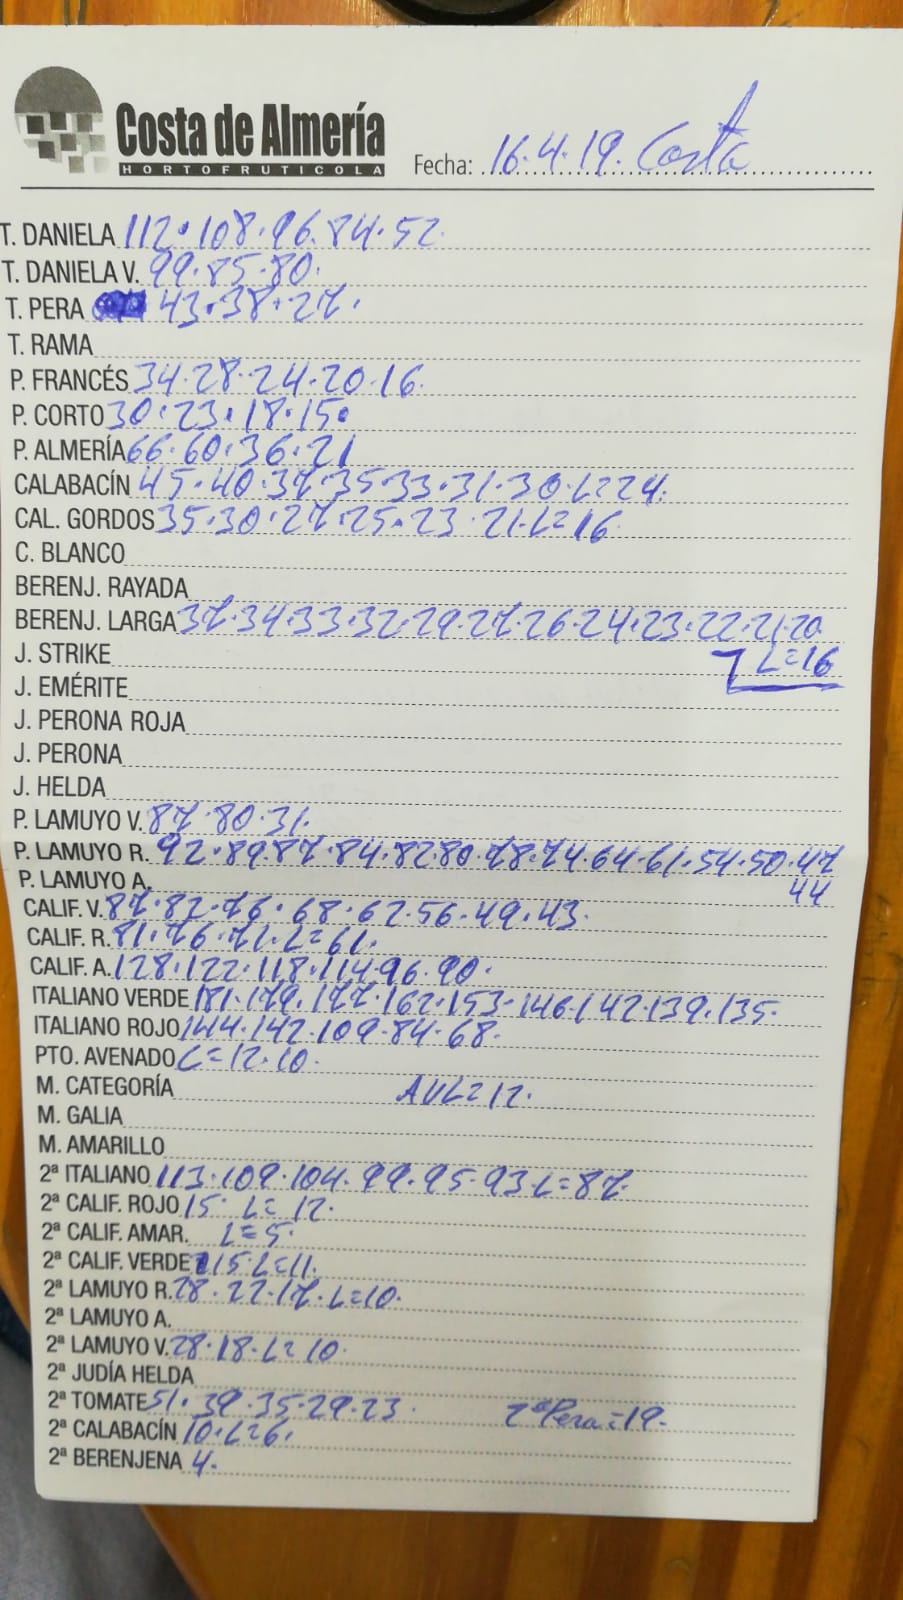 Costa de Almería
HORTOFRUTICOLA
Fecha: 16.4.19. Costa
T. DANIELA 112.108.96.84.52.
T. DANIELA V. 99.85.80.
T. PERA 43.38.27.
T. RAMA
P. FRANCÉS 34.28.24.20.16.
P. CORTO 30.23.18.15.
P. ALMERÍA 66.60.36.21
CALABACÍN 45.40.37.35.33.31.30.L=24.
CAL. GORDOS 35.30.27.25.23.21.L=16.
C. BLANCO
BERENJ. RAYADA
BERENJ. LARGA 37.34.33.32.29.27.26.24.23.22.21.20.
J. STRIKE L=16
J. EMÉRITE
J. PERONA ROJA
J. PERONA
J. HELDA
P. LAMUYO V. 87.80.31.
P. LAMUYO R. 92.89.87.84.82.80.78.74.64.61.54.50.47
P. LAMUYO A. 44
CALIF. V. 87.82.76.68.62.56.49.43.
CALIF. R. 81.76.71.L=61.
CALIF. A. 128.122.118.114.96.90.
ITALIANO VERDE 181.179.177.162.153.146.142.139.135.
ITALIANO ROJO 144.142.109.84.68.
PTO. AVENADO L=12.10.
M. CATEGORÍA AVL=12.
M. GALIA
M. AMARILLO
2ª ITALIANO 113.109.104.99.95.93.L=87.
2ª CALIF. ROJO 15. L=12.
2ª CALIF. AMAR. L=5.
2ª CALIF. VERDE 15.L=11.
2ª LAMUYO R. 28.22.17.L=10.
2ª LAMUYO A.
2ª LAMUYO V. 28.18.L=10.
2ª JUDÍA HELDA
2ª TOMATE 51.39.35.29.23. 2ªPera=19.
2ª CALABACÍN 10.L=6.
2ª BERENJENA 4.